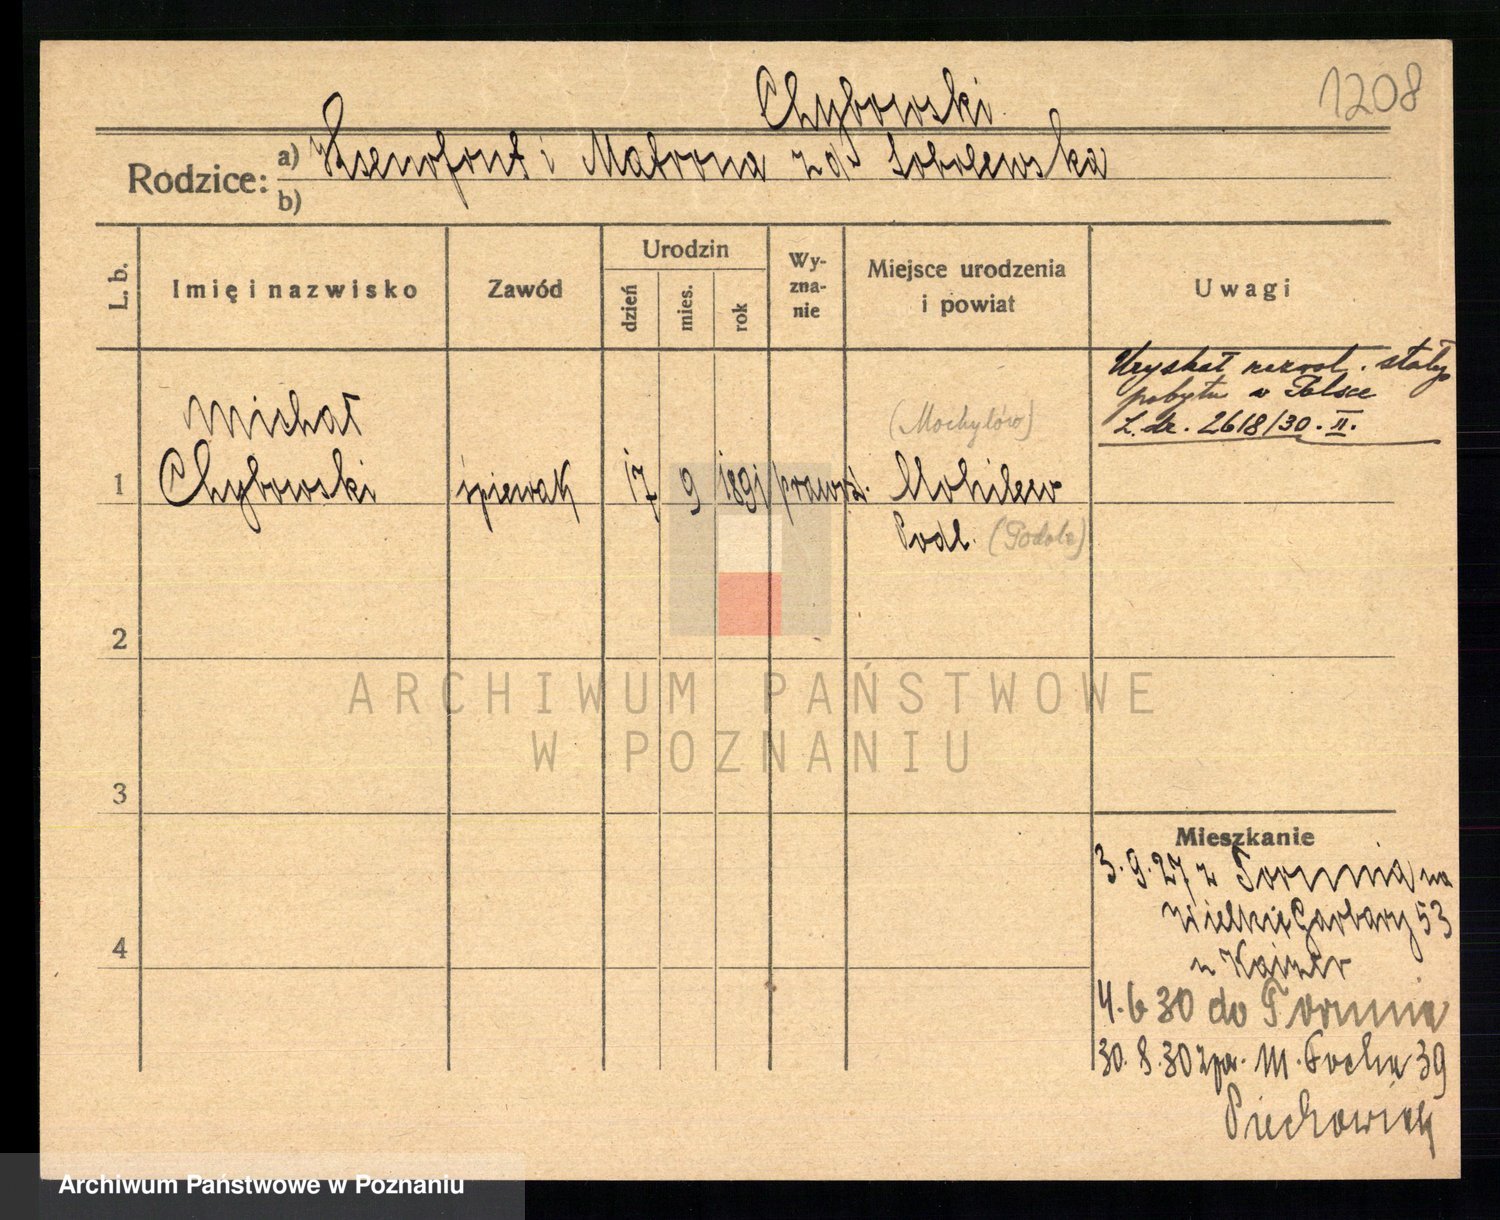 1208
Chybowski
Rodzice: a) Ksenofont i Matrona z d. Sobolewska
b)
L. b.
Imię i nazwisko
Zawód
Urodzin
dzień
mies.
rok
Wy-
zna-
nie
Miejsce urodzenia
i powiat
Uwagi
Uzyskał zezwol. stałego
pobytu w Polsce
L. dz. 2618/30. II.
Michał
(Mochylów)
1 Chybowski śpiewak 17 9 1891 prawosł. Mohilew
Podl. (Podole)
2
3
4
Mieszkanie
3.9.27 z Torunia na
Wielkie Garbary 53
u Kajzer
4.6 30 do Torunia
30.8.30 zpr. M. Focha 39
Piechowiak
ARCHIWUM PAŃSTWOWE
W POZNANIU
Archiwum Państwowe w Poznaniu